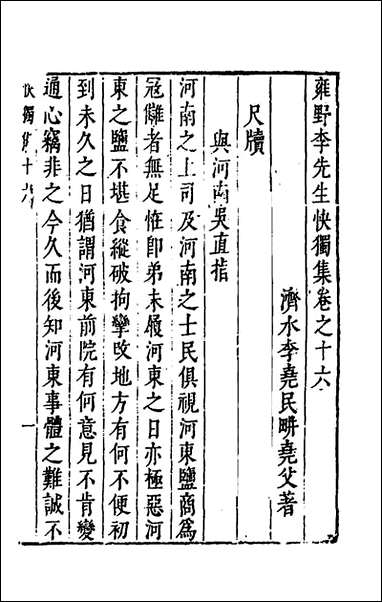 雍野李先生快獨集卷之十六
濟水李堯民畊堯父著
尺牘
與河南吳直指
河南之上司及河南之士民俱視河東鹽商爲
冦讎者無足恠卽弟未履河東之日亦極惡河
東之鹽不堪食縱破拘攣改地方有何不便初
到未久之日猶謂河東前院有何意見不肯變
通心竊非之今久而後知河東事體之難誠不
快獨集十六
一